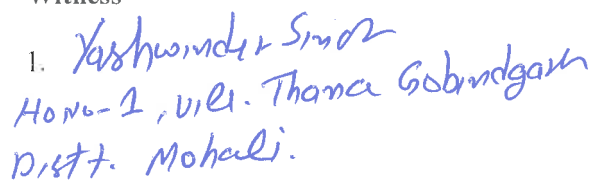 Witness
1. Yashwinder Singh
HO NO-1, Vill. Thana Gobindgarh
Distt. Mohali.